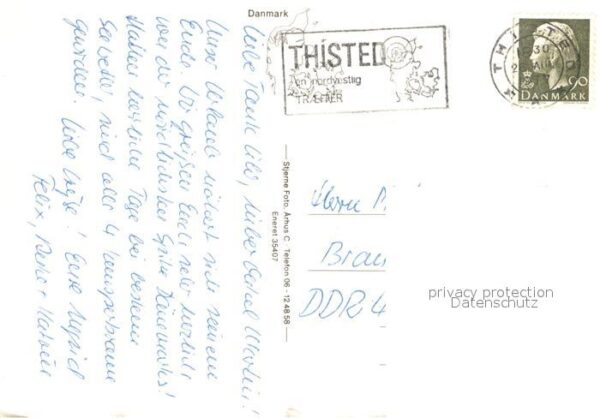 Danmark
THISTED
en nordvestlig
TRÆFFER
THISTED
90
DANMARK
Liebe Tante Lilo, lieber Onkel Martin!
Unser Urlaub nähert sich seinem
Ende. Wir grüßen Euch sehr herzlich
von der nördlichsten Spitze Dänemarks!
Haben herrliche Tage bei bestem
Seewetter, sind alle 4
Liebe Grüße! Eure
Felix, Rainer + Katrin
Stjerne Foto, Århus C . Telefon 06 - 12 48 58
Eneret 35407
Herrn
Brau
DDR 4
privacy protection
Datenschutz